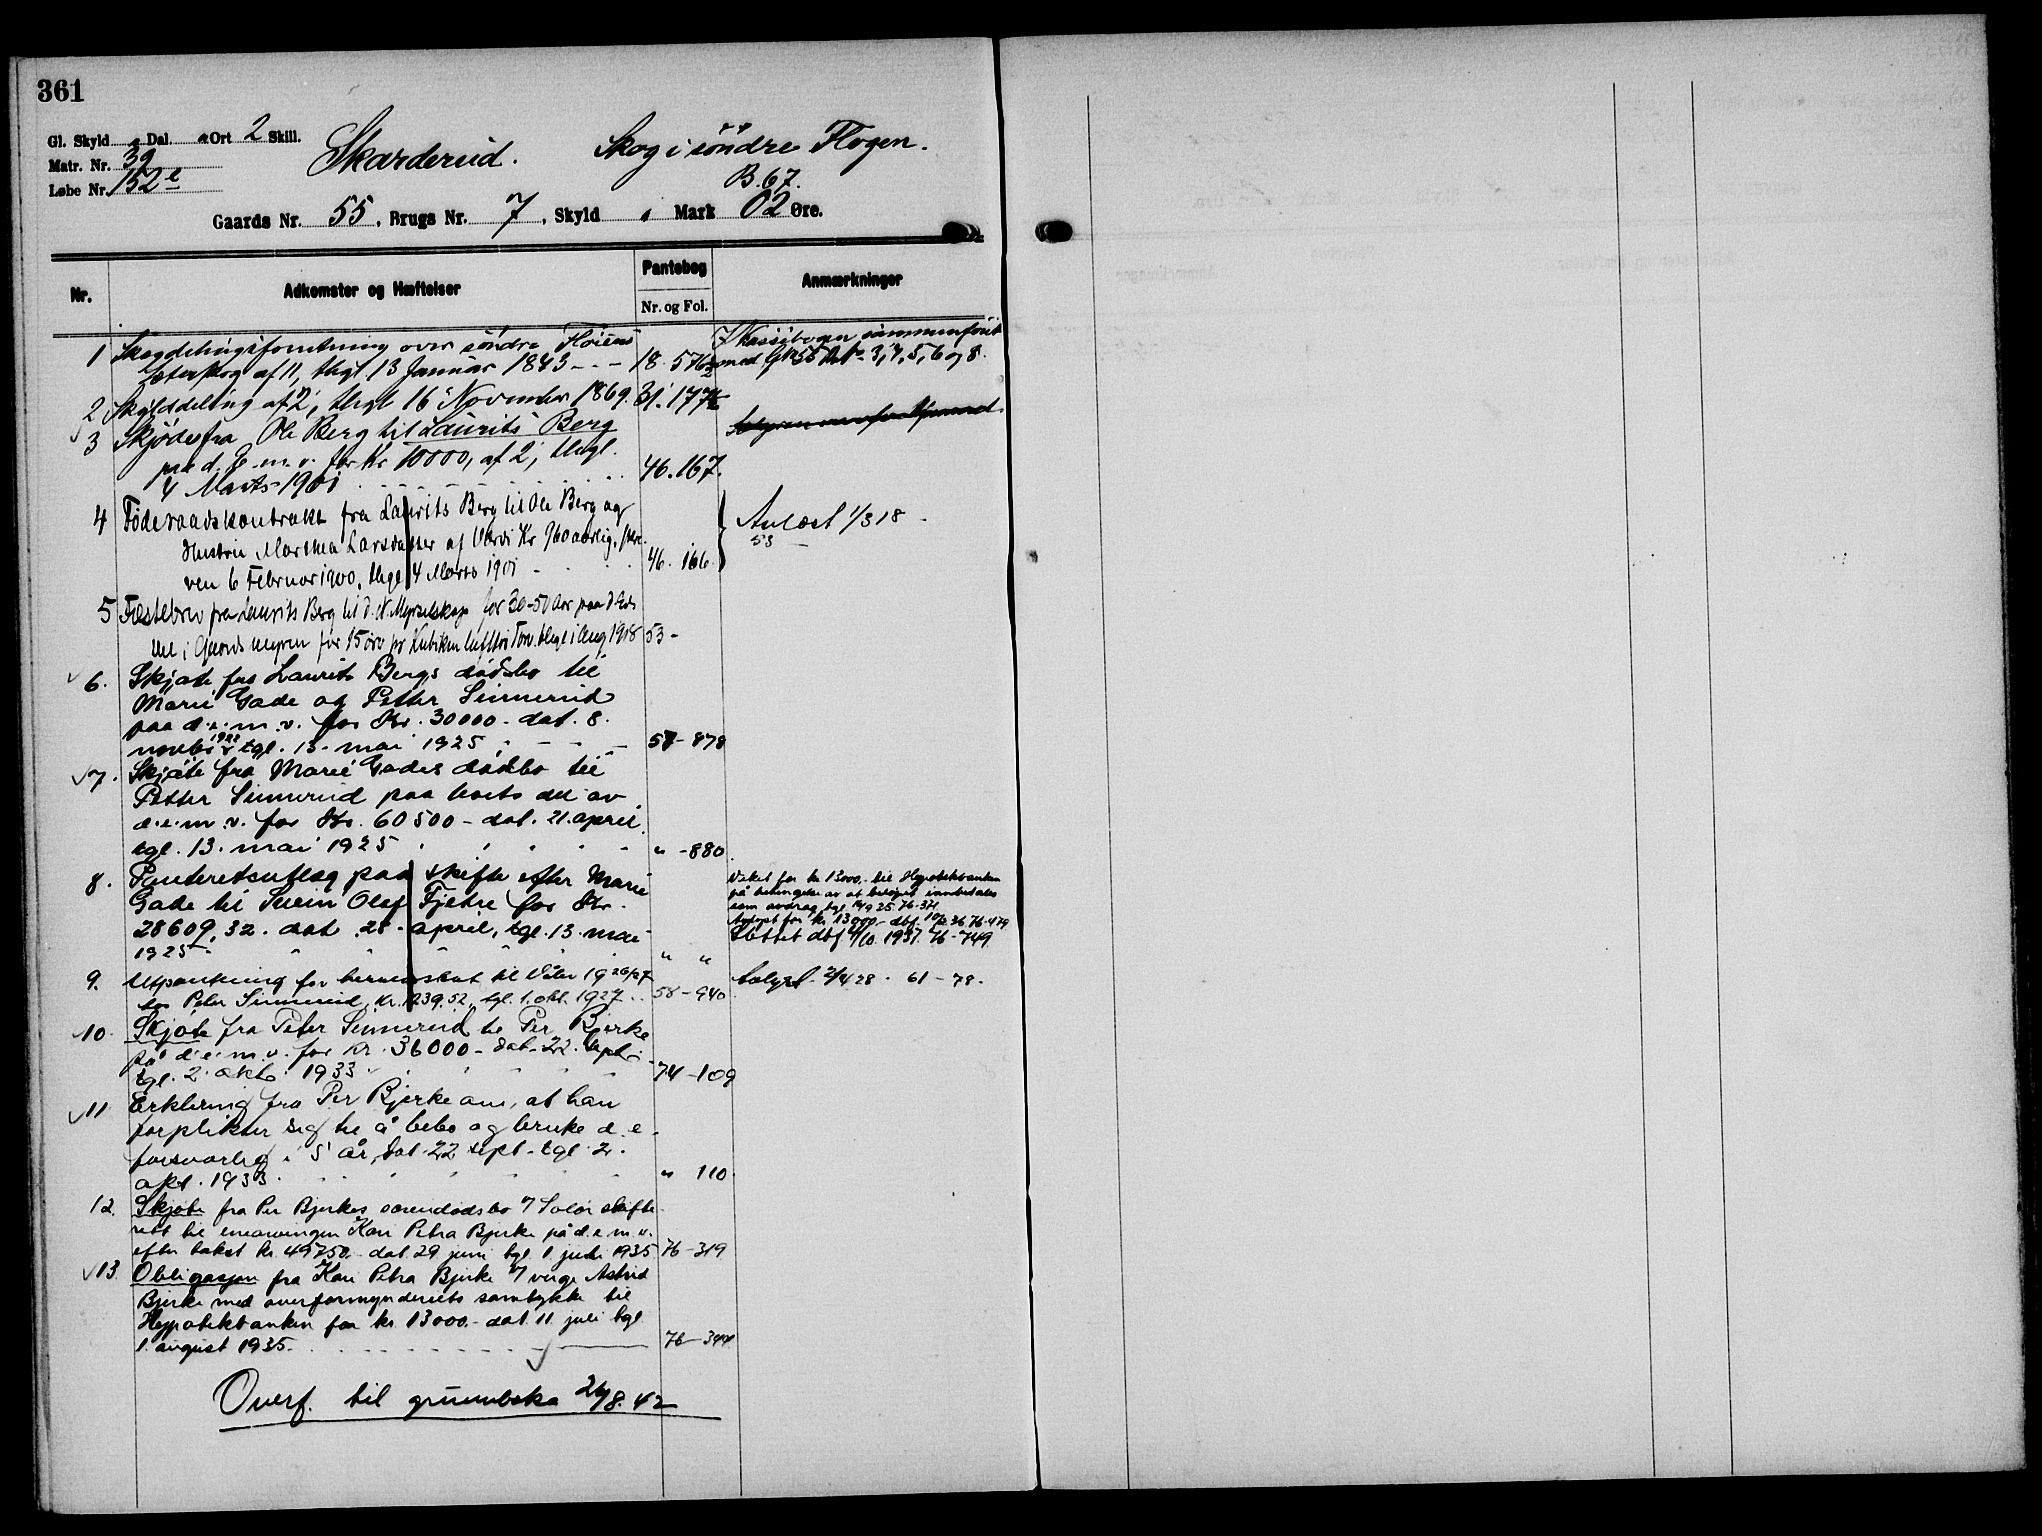 361
Gl. Skyld „ Dal. „ Ort 2 Skill.
Matr. Nr. 39
Løbe Nr. 152 e
Skarderud. Skog i söndre Flogen.
B. 67.
Gaards Nr. 55, Brugs Nr. 7, Skyld „ Mark 02 Øre.
Nr. Adkomster og Hæftelser Pantebog Nr. og Fol. Anmærkninger
1 Skogdelingsforretning over söndre
af 11, thgl. 13 Januar 1843 - - - 18. 576
med Gno 55 Bno 3, 4, 5, 6 og 8.
2 Skylddeling af 2, thgl 16 November 1869. 31. 177
3 Skjöde fra Ole Berg til Laurits Berg
paa d. E. m. v. for Kr 10000, af 2, thgl.
4 Marts 1901 46. 167.
4 Föderaadskontrakt fra Laurits Berg til Ole Berg og
Hustru Marthea Larsdatter af Værdi Kr 960 aarlig, skre-
ven 6 Februar 1900, thgl 4 Marts 1901 - 46. 166.
Avlæst 1/3 18 -
53
5 Fæstebrev fra Laurits Berg til D. N. Myrselskap for 30-50 Aar paa
i myren for 15 öre pr Kubikm lufttör Torv. thgl 1 Aug 1918 53 -
6. Skjøte fra Laurits Bergs dødsbo til
Marie Gade og Petter Sinnerud
paa d. e. m. v. for Kr. 30000 - dat. 8.
novbr 1922 tgl. 13. mai 1925 - - - 57 - 878
7. Skjøte fra Marie Gades dødsbo til
Petter Sinnerud paa halvdel av
d. e. m. v. for Kr. 60500 - dat. 21. april
tgl. 13. mai 1925 „ - 880.
8. Panteretsutlæg paa skifte efter Marie
Gade til Svein Olaf Fjetre for Kr.
28609,32. dat 21. april, tgl. 13. mai
1925. „ „
Veket for kr 13000,- til Hypotekbanken
på betingelse av at beløpet innbetales
som avdrag, tgl 35. 76-371
Avlyst for kr 13000,- dbf. 36 76-479
Slettet dbf 1937. 76-749.
9. Utpantning for herredsskat til Våler 1926/27
hos Peter Sinnerud, kr. 1239.52, tgl. 1. okt. 1927. 58 - 940
Avlyst 2/4 28 - 61 - 78.
10. Skjøte fra Peter Sinnerud til Per Bjerke
på d. e. m. v. for Kr. 36000 - dat. 22. sept.
tgl. 2. oktb. 1933. 74 - 109
11 Erklæring fra Per Bjerke om, at han
forplikter sig til å bebo og bruke d. e.
forsvarlig i 5 år, dat. 22 sept. - tgl. 2.
okt. 1933. „ 110.
12. Skjøte fra Per Bjerkes særeiedødsbo v/ Solør skifte-
rett til enearvingen Kari Petra Bjerke på d. e. m. v.
efter takst kr. 49750.- dat 29 juni tgl. 1. juli 1935 76 - 319
13. Obligasjon fra Kari Petra Bjerke v/ verge Astrid
Bjerke med overformynderiets samtykke til
Hypotekbanken for kr. 13000.- dat. 11 juli tgl.
1. august 1935. 76 - 344
Overf. til grunnboka 26/8. 42